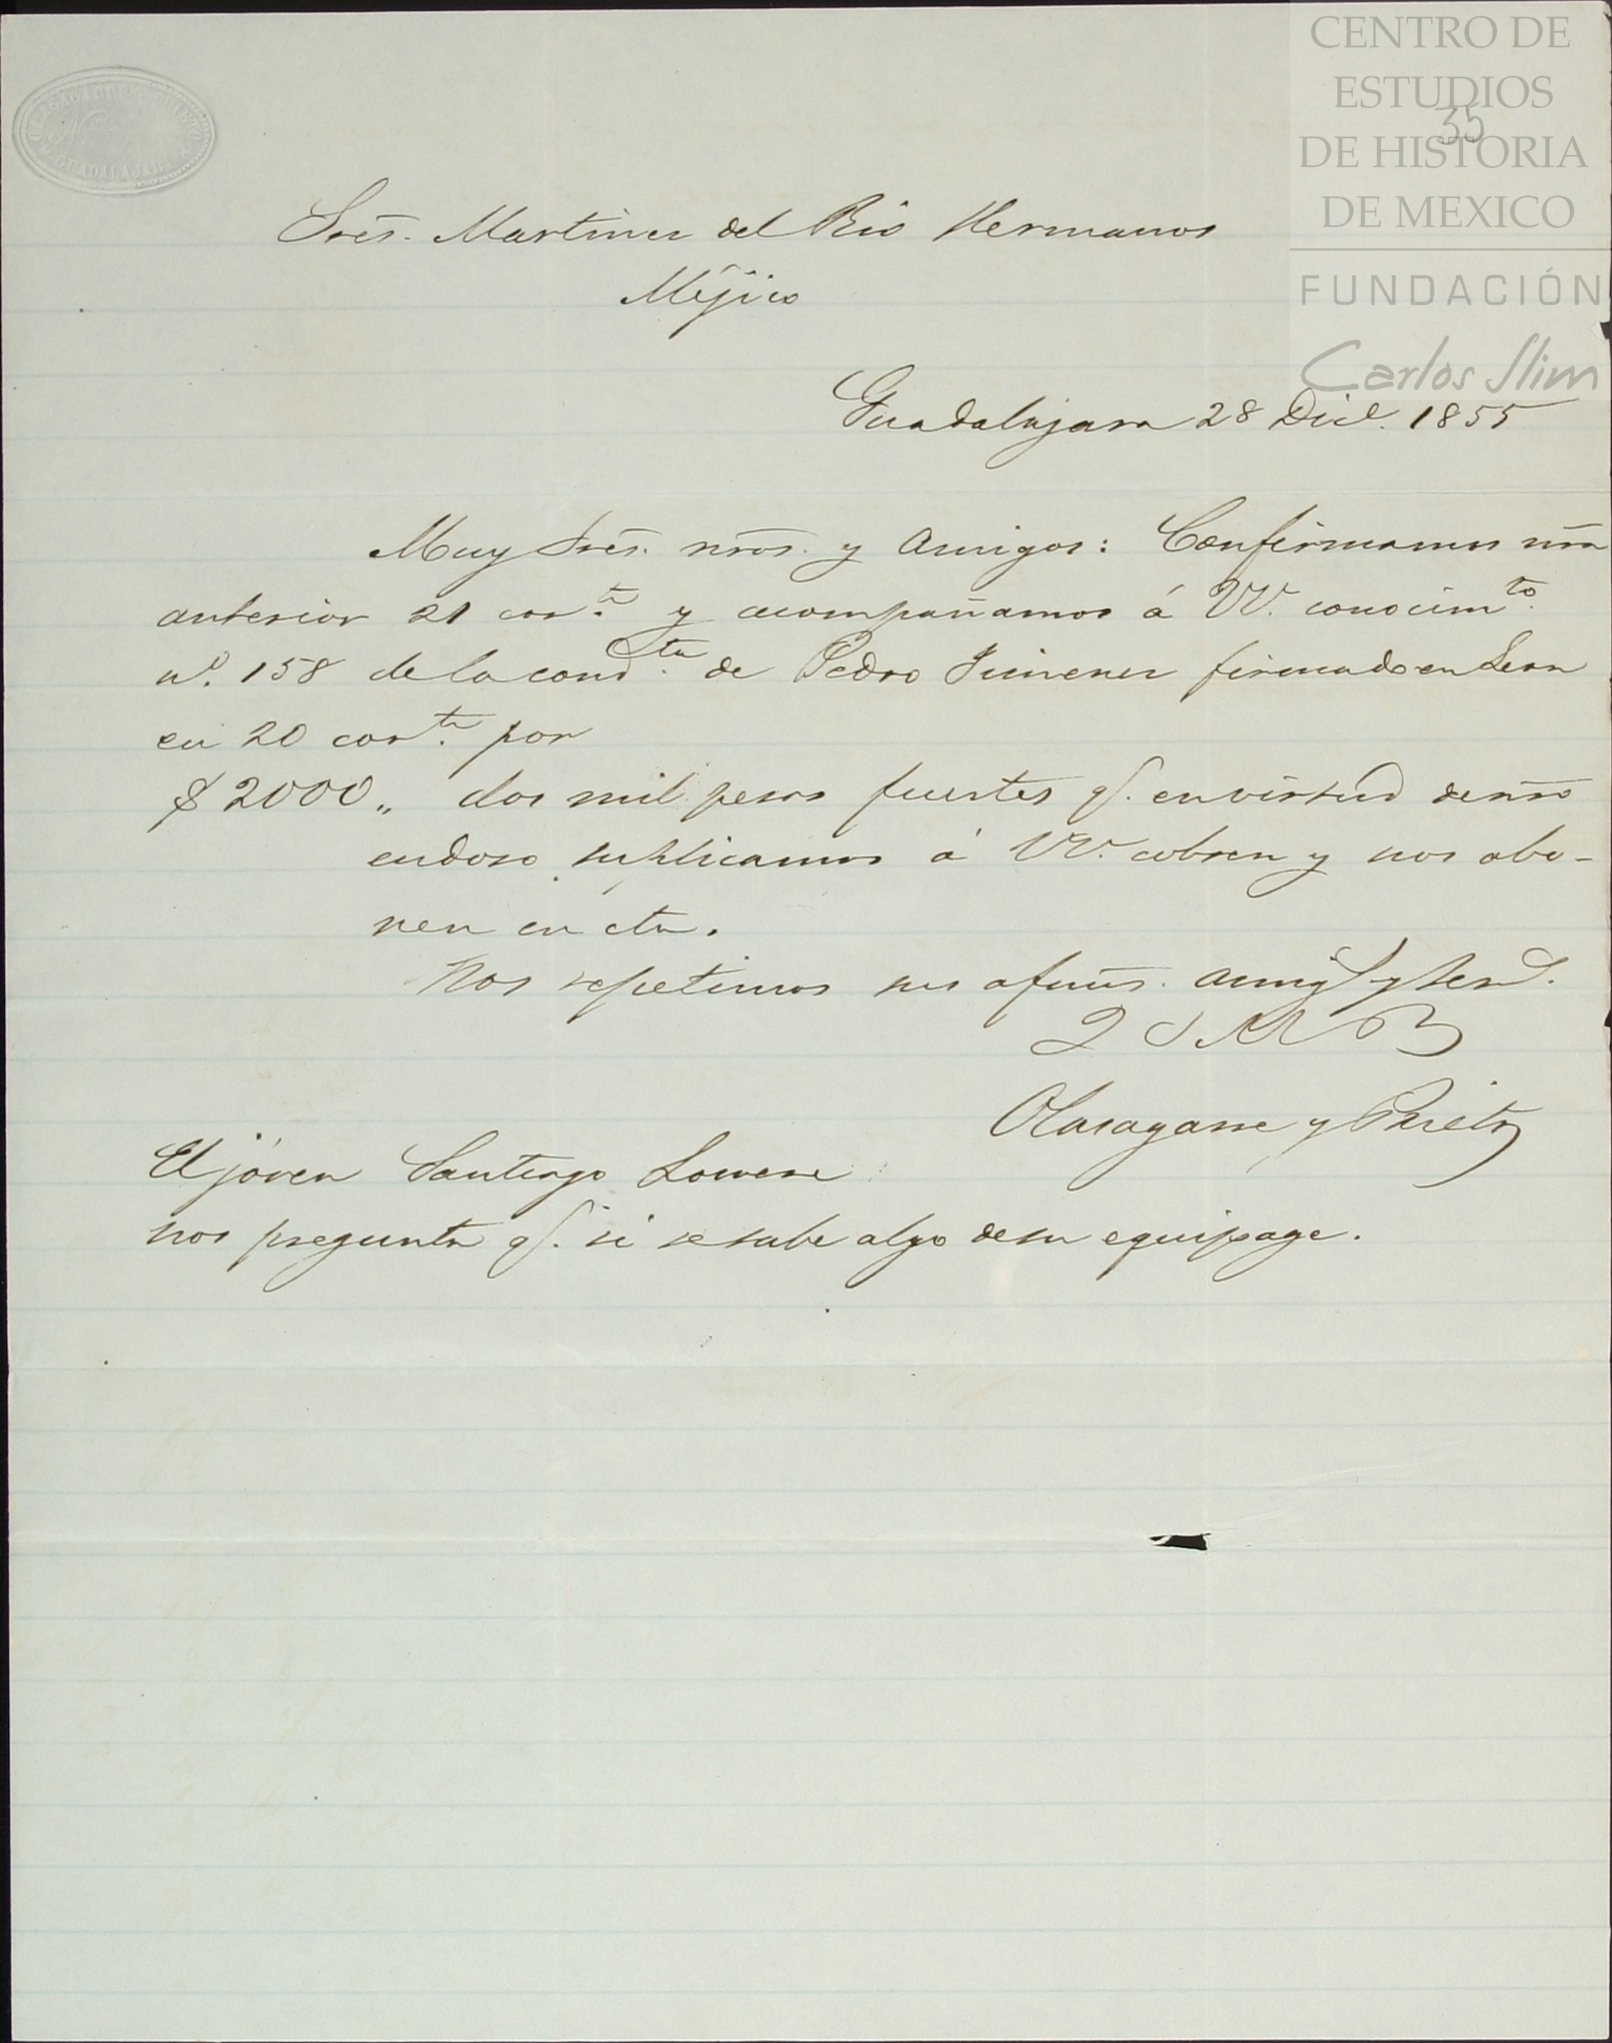 CENTRO DE
ESTUDIOS
DE HISTORIA
DE MEXICO
FUNDACIÓN
Carlos Slim
35
GUADALAJARA
Sres. Martinez del Rio Hermanos
Méjico
Guadalajara 28 Dice. 1855
Muy Sres. nros. y Amigos: Confirmamos nra
anterior 21 corte. y acompañamos á VV. conocimto.
no. 158 de la condta. de Pedro Jimenez firmado en Leon
en 20 corte. por
$ 2000,, dos mil pesos fuertes q. en virtud de nro
endoso suplicamos á VV. cobren y nos abo-
nen en cta.
Nos repetimos sus afmos. amigs y ser.
Q S M B
Olasagarre y Prieto
El jóven Santiago
nos pregunta q. si se sabe algo de su equipage.